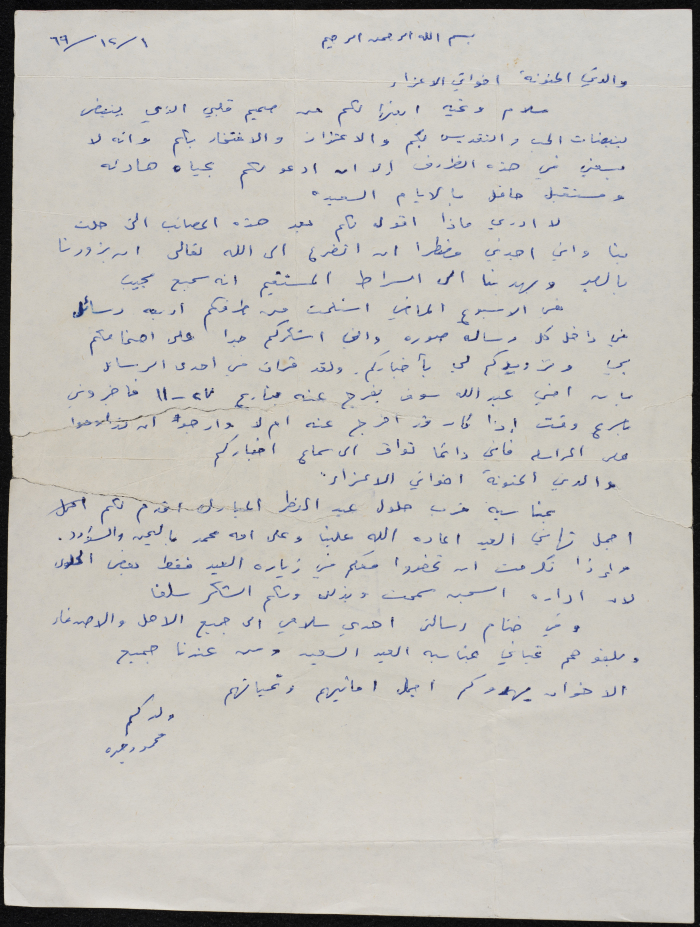 بسم الله الرحمن الرحيم
٦٩/١٢/١
والدتي الحنونة اخواتي الاعزاء
سلام وتحيه ابعثها لكم من صميم قلبي الذي ينبض
بنبضات الحب والتقديس لكم والاعتزاز والافتخار بكم وانه لا
يسعني في هذه الظروف إلا ان ادعو لكم بحياه هادئه
ومستقبل حافل بالايام السعيده
لا ادري ماذا اقول لكم بعد هذه المصائب التي حلت
بنا واني اجدني مضطرا ان اتضرع الى الله تعالى ان يزورنا
بالصبر ويهدينا الى السراط المستقيم انه سميع مجيب
في الاسبوع الماضي استلمت من طرفكم اربعه رسائل
في داخل كل رساله صوره واني اشكركم جدا على اهتمامكم
بي وتزويدكم لي بأخباركم. ولقد قرأت في احدى الرسائل
بان اخي عبد الله سوف يفرج عنه بتاريخ ١١ فاخبروني
باسرع وقت إذا كان قد افرج عنه ام لا وارجوا ان
على المراسله فاني دائما تواق الى سماع اخباركم
والدتي الحنونة اخواني الاعزاء
بمناسبة قرب حلول عيد الفطر المبارك اقدم لكم اجمل
اجمل تهاني العيد اعاده الله علينا وعلى امه محمد باليمن والسؤدد.
وإذا تكرمت ان تحضروا معكم في زياره العيد فقط بعض الحلوى
لان اداره السجن سمحت وبذلك ولكم الشكر سلفا
وفي ختام رسالتي اهدي سلامي الى جميع الاهل والاصدقاء
وبلغوهم تحياتي بمناسبه العيد السعيد ومن عندنا جميع
الاخوان يهدوكم اجمل امانيهم وتحياتهم
ولدكم
محمود